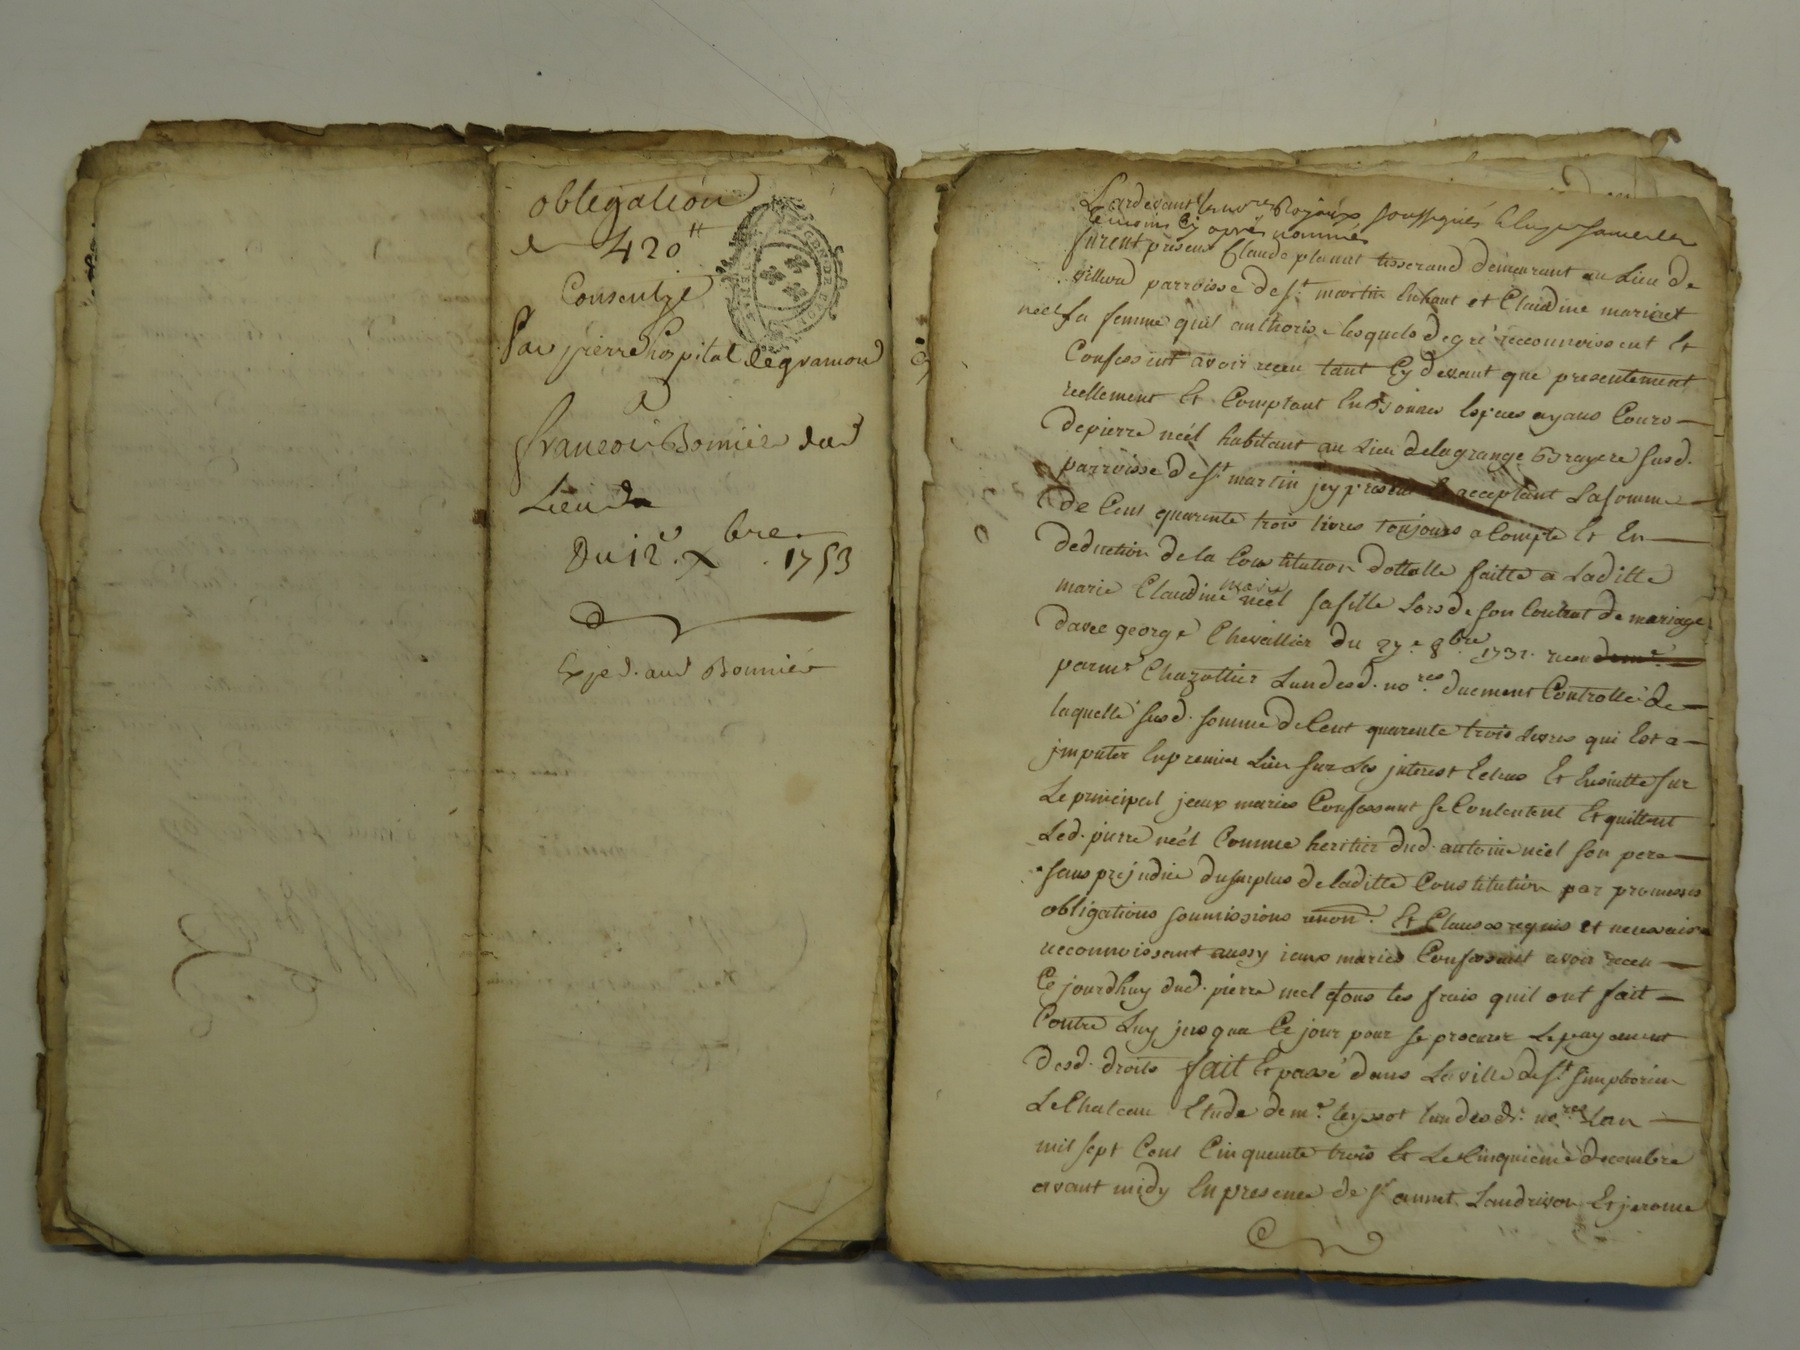 obligation
de 420 ₶
Consentye
Par pierre hospital degramond
A
francois Bonnier dud
Lieu
Du 12e. Xbre. 1753
Exped. aud Bonnier
Pardevant les nores Royaux soussignés
temoins cy aprés nommés
furent présens Claude planut tisserand demeurant au Lieu de
villard parroisse de st. martin luhaut et Claudine marie
neel sa femme quil authorise lesquels de gré reconnoissent Et
Confessent avoir receu tant Cy devant que presentement
reellement Et Comptant En bonnes Espèces ayans Cours
de pierre néél habitant au Lieu delagrange Brayere susd.
parroisse de st. martin jcy présent Et acceptant La somme
de Cent quarente trois livres toujours a Compte Et En
deduction de la Constitution dottalle faitte a Laditte
marie Claudine néél sa fille Lors de son Contrat de mariage
davec george Chevallier du 27e. 8bre. 1731. receu
par me Chazottier Lun desd. nores duement Controllé de
laquelle susd. somme de Cent quarente trois Livres qui Est a
jmputer En premier Lieu sur Les jnterest Echus Et Ensuitte sur
Le principal jceux mariés Confessant se Contentent Et quittent
Led. pierre néél Comme heritier dud. antoine néel son pere
sans prejudice du surplus de laditte Constitution par promesses
obligations soumissions renon. Et Clauses requis et necessaire
reconnoissant aussy iceux mariés Confessent avoir receu
Ce jourdhuy dud. pierre neel tous les frais quil ont fait
Contre Luy jusqua Ce jour pour se procurer Le payement
desd. droits fait Et passé dans La ville de st. simphorien
Le Chateau Etude de me. teyssot lun desd. nores. Lan
mil sept Cent Cinquante trois Et Le Cinquieme decembre
avant midy En presence de sr annet Landrivon Et jerome